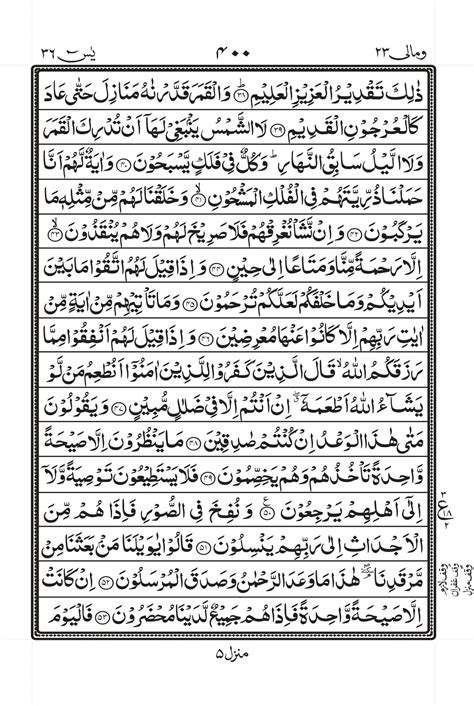 ومالی ۲۳
۴۰۰
یٰسٓ ۳۶
ذٰلِكَ تَقْدِيْرُ الْعَزِيْزِ الْعَلِيْمِ ۳۸ وَالْقَمَرَ قَدَّرْنٰهُ مَنَازِلَ حَتّٰى عَادَ
كَالْعُرْجُوْنِ الْقَدِيْمِ ۳۹ لَا الشَّمْسُ يَنْۢبَغِيْ لَهَاۤ اَنْ تُدْرِكَ الْقَمَرَ
وَلَا الَّيْلُ سَابِقُ النَّهَارِ ؕ وَكُلٌّ فِيْ فَلَكٍ يَّسْبَحُوْنَ ۴۰ وَاٰيَةٌ لَّهُمْ اَنَّا
حَمَلْنَا ذُرِّيَّتَهُمْ فِي الْفُلْكِ الْمَشْحُوْنِ ۴۱ وَخَلَقْنَا لَهُمْ مِّنْ مِّثْلِهٖ مَا
يَرْكَبُوْنَ ۴۲ وَاِنْ نَّشَاْ نُغْرِقْهُمْ فَلَا صَرِيْخَ لَهُمْ وَلَا هُمْ يُنْقَذُوْنَ ۴۳
اِلَّا رَحْمَةً مِّنَّا وَمَتَاعًا اِلٰى حِيْنٍ ۴۴ وَاِذَا قِيْلَ لَهُمُ اتَّقُوْا مَا بَيْنَ
اَيْدِيْكُمْ وَمَا خَلْفَكُمْ لَعَلَّكُمْ تُرْحَمُوْنَ ۴۵ وَمَا تَاْتِيْهِمْ مِّنْ اٰيَةٍ مِّنْ
اٰيٰتِ رَبِّهِمْ اِلَّا كَانُوْا عَنْهَا مُعْرِضِيْنَ ۴۶ وَاِذَا قِيْلَ لَهُمْ اَنْفِقُوْا مِمَّا
رَزَقَكُمُ اللّٰهُ ۙ قَالَ الَّذِيْنَ كَفَرُوْا لِلَّذِيْنَ اٰمَنُوْۤا اَنُطْعِمُ مَنْ لَّوْ
يَشَآءُ اللّٰهُ اَطْعَمَهٗۤ ۖ اِنْ اَنْتُمْ اِلَّا فِيْ ضَلٰلٍ مُّبِيْنٍ ۴۷ وَيَقُوْلُوْنَ
مَتٰى هٰذَا الْوَعْدُ اِنْ كُنْتُمْ صٰدِقِيْنَ ۴۸ مَا يَنْظُرُوْنَ اِلَّا صَيْحَةً
وَّاحِدَةً تَاْخُذُهُمْ وَهُمْ يَخِصِّمُوْنَ ۴۹ فَلَا يَسْتَطِيْعُوْنَ تَوْصِيَةً وَّلَاۤ
اِلٰۤى اَهْلِهِمْ يَرْجِعُوْنَ ۵۰ وَنُفِخَ فِي الصُّوْرِ فَاِذَا هُمْ مِّنَ
الْاَجْدَاثِ اِلٰى رَبِّهِمْ يَنْسِلُوْنَ ۵۱ قَالُوْا يٰوَيْلَنَا مَنْۢ بَعَثَنَا مِنْ
مَّرْقَدِنَا ۘ هٰذَا مَا وَعَدَ الرَّحْمٰنُ وَصَدَقَ الْمُرْسَلُوْنَ ۵۲ اِنْ كَانَتْ
اِلَّا صَيْحَةً وَّاحِدَةً فَاِذَا هُمْ جَمِيْعٌ لَّدَيْنَا مُحْضَرُوْنَ ۵۳ فَالْيَوْمَ
۳
ع ۱۸
۲
وقف لازم
وقف غفران
وقف منزل
منزل ۵